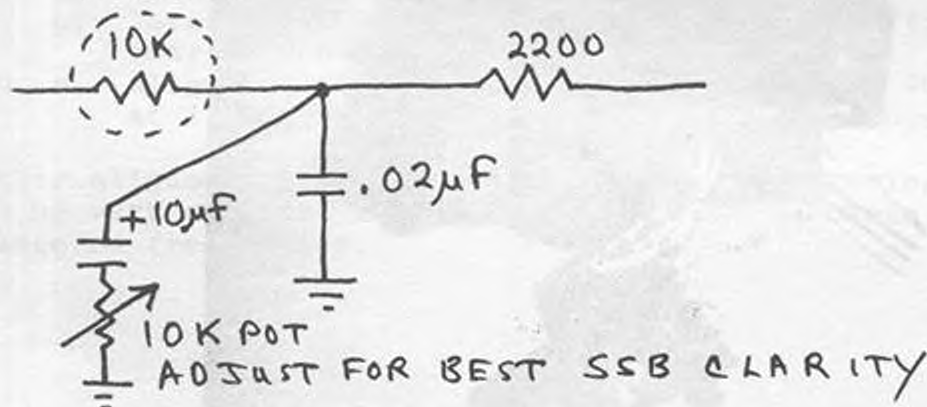 10K
2200
.02μF
+10μf
10K POT
ADJUST FOR BEST SSB CLARITY